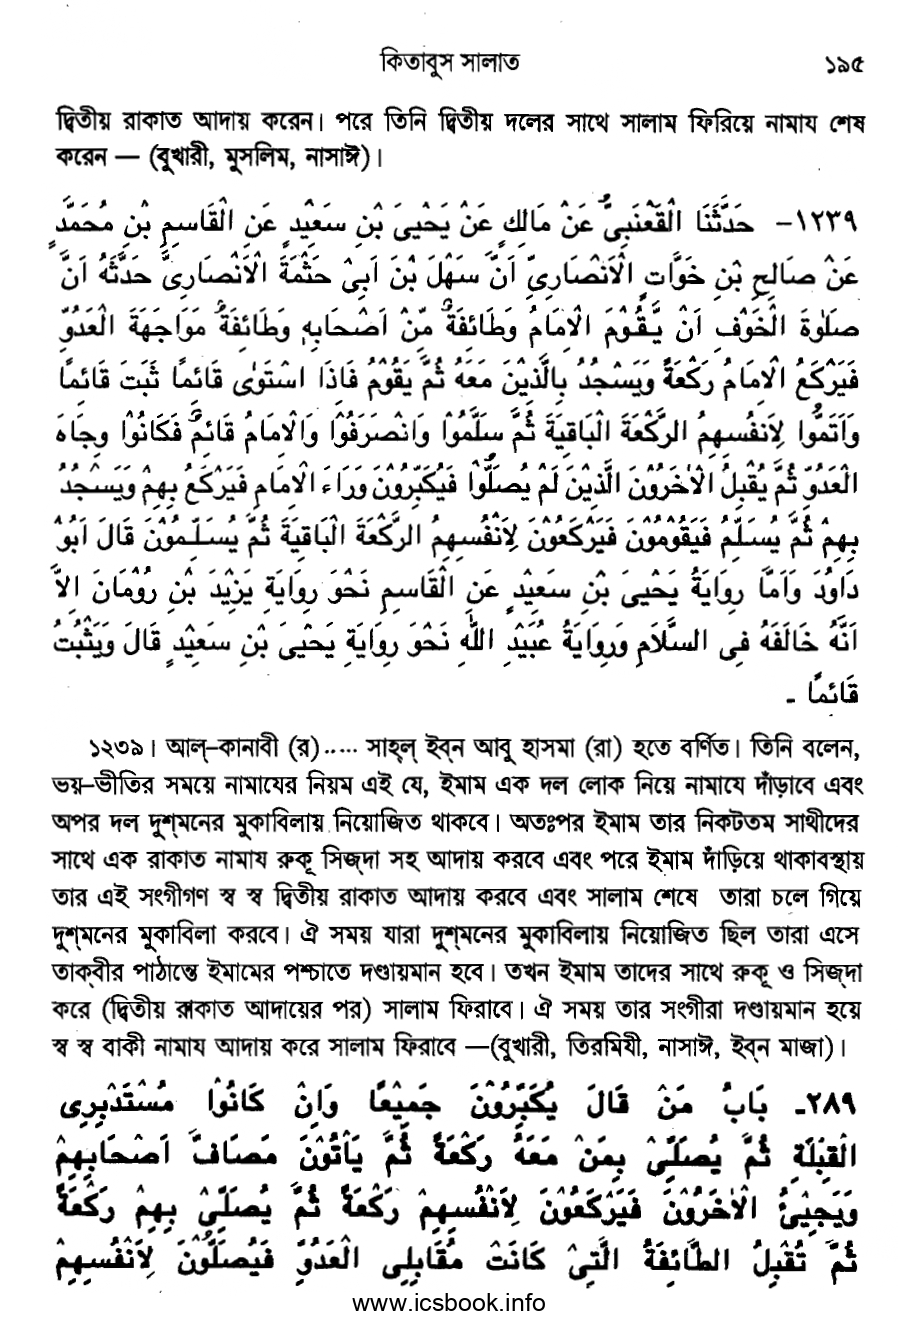 কিতাবুস সালাত ১৯৫
দ্বিতীয় রাকাত আদায় করেন। পরে তিনি দ্বিতীয় দলের সাথে সালাম ফিরিয়ে নামায শেষ
করেন — (বুখারী, মুসলিম, নাসাঈ)।
١٢٣٩- حَدَّثَنَا الْقَعْنَبِىُّ عَنْ مَالِكٍ عَنْ يَحْيىَ بْنِ سَعِيْدٍ عَنِ الْقَاسِمِ بْنِ مُحَمَّدٍ
عَنْ صَالِحِ بْنِ خَوَّاتٍ الْاَنْصَارِىِّ اَنَّ سَهْلَ بْنَ اَبِىْ حَثْمَةَ الْاَنْصَارِىَّ حَدَّثَهُ اَنَّ
صَلٰوةَ الْخَوْفِ اَنْ يَّقُوْمَ الْاِمَامُ وَطَائِفَةٌ مِّنْ اَصْحَابِهٖ وَطَائِفَةٌ مَوَاجِهَةَ الْعَدُوِّ
فَيَرْكَعُ الْاِمَامُ رَكْعَةً وَيَسْجُدُ بِالَّذِيْنَ مَعَهُ ثُمَّ يَقُوْمُ فَاِذَا اسْتَوٰى قَائِمًا ثَبَتَ قَائِمًا
وَاَتَمُّوا لِاَنْفُسِهِمُ الرَّكْعَةَ الْبَاقِيَةَ ثُمَّ سَلَّمُوْا وَانْصَرَفُوْا وَالْاِمَامُ قَائِمٌ فَكَانُوْا وِجَاهَ
الْعَدُوِّ ثُمَّ يُقْبِلُ الْاٰخَرُوْنَ الَّذِيْنَ لَمْ يُصَلُّوْا فَيُكَبِّرُوْنَ وَرَاءَ الْاِمَامِ فَيَرْكَعُ بِهِمْ وَيَسْجُدُ
بِهِمْ ثُمَّ يُسَلِّمُ فَيَقُوْمُوْنَ فَيَرْكَعُوْنَ لِاَنْفُسِهِمُ الرَّكْعَةَ الْبَاقِيَةَ ثُمَّ يُسَلِّمُوْنَ قَالَ اَبُوْ
دَاوُدَ وَاَمَّا رِوَايَةُ يَحْيىَ بْنِ سَعِيْدٍ عَنِ الْقَاسِمِ نَحْوَ رِوَايَةِ يَزِيْدَ بْنِ رُوْمَانَ اِلاَّ
اَنَّهُ خَالَفَهُ فِى السَّلَامِ وَرِوَايَةُ عُبَيْدِ اللّٰهِ نَحْوَ رِوَايَةِ يَحْيىَ بْنِ سَعِيْدٍ قَالَ وَيَثْبُتُ
قَائِمًا ـ
১২৩৯। আল্-কানাবী (র)..... সাহ্ল্ ইব্ন আবু হাসমা (রা) হতে বর্ণিত। তিনি বলেন,
ভয়-ভীতির সময়ে নামাযের নিয়ম এই যে, ইমাম এক দল লোক নিয়ে নামাযে দাঁড়াবে এবং
অপর দল দুশ্মনের মুকাবিলায় নিয়োজিত থাকবে। অতঃপর ইমাম তার নিকটতম সাথীদের
সাথে এক রাকাত নামায রুকূ সিজ্দা সহ আদায় করবে এবং পরে ইমাম দাঁড়িয়ে থাকাবস্থায়
তার এই সংগীগণ স্ব স্ব দ্বিতীয় রাকাত আদায় করবে এবং সালাম শেষে তারা চলে গিয়ে
দুশ্মনের মুকাবিলা করবে। ঐ সময় যারা দুশ্মনের মুকাবিলায় নিয়োজিত ছিল তারা এসে
তাক্বীর পাঠান্তে ইমামের পশ্চাতে দণ্ডায়মান হবে। তখন ইমাম তাদের সাথে রুকূ ও সিজ্দা
করে (দ্বিতীয় রাকাত আদায়ের পর) সালাম ফিরাবে। ঐ সময় তার সংগীরা দণ্ডায়মান হয়ে
স্ব স্ব বাকী নামায আদায় করে সালাম ফিরাবে —(বুখারী, তিরমিযী, নাসাঈ, ইব্ন মাজা)।
٢٨٩ـ بَابُ مَنْ قَالَ يُكَبِّرُوْنَ جَمِيْعًا وَاِنْ كَانُوْا مُسْتَدْبِرِى
الْقِبْلَةِ ثُمَّ يُصَلِّىْ بِمَنْ مَعَهُ رَكْعَةً ثُمَّ يَأْتُوْنَ مَصَافَّ اَصْحَابِهِمْ
وَيَجِيْئُ الْاٰخَرُوْنَ فَيَرْكَعُوْنَ لِاَنْفُسِهِمْ رَكْعَةً ثُمَّ يُصَلِّىْ بِهِمْ رَكْعَةً
ثُمَّ تُقْبِلُ الطَّائِفَةُ الَّتِىْ كَانَتْ مُقَابِلِى الْعَدُوِّ فَيُصَلُّوْنَ لِاَنْفُسِهِمْ
www.icsbook.info